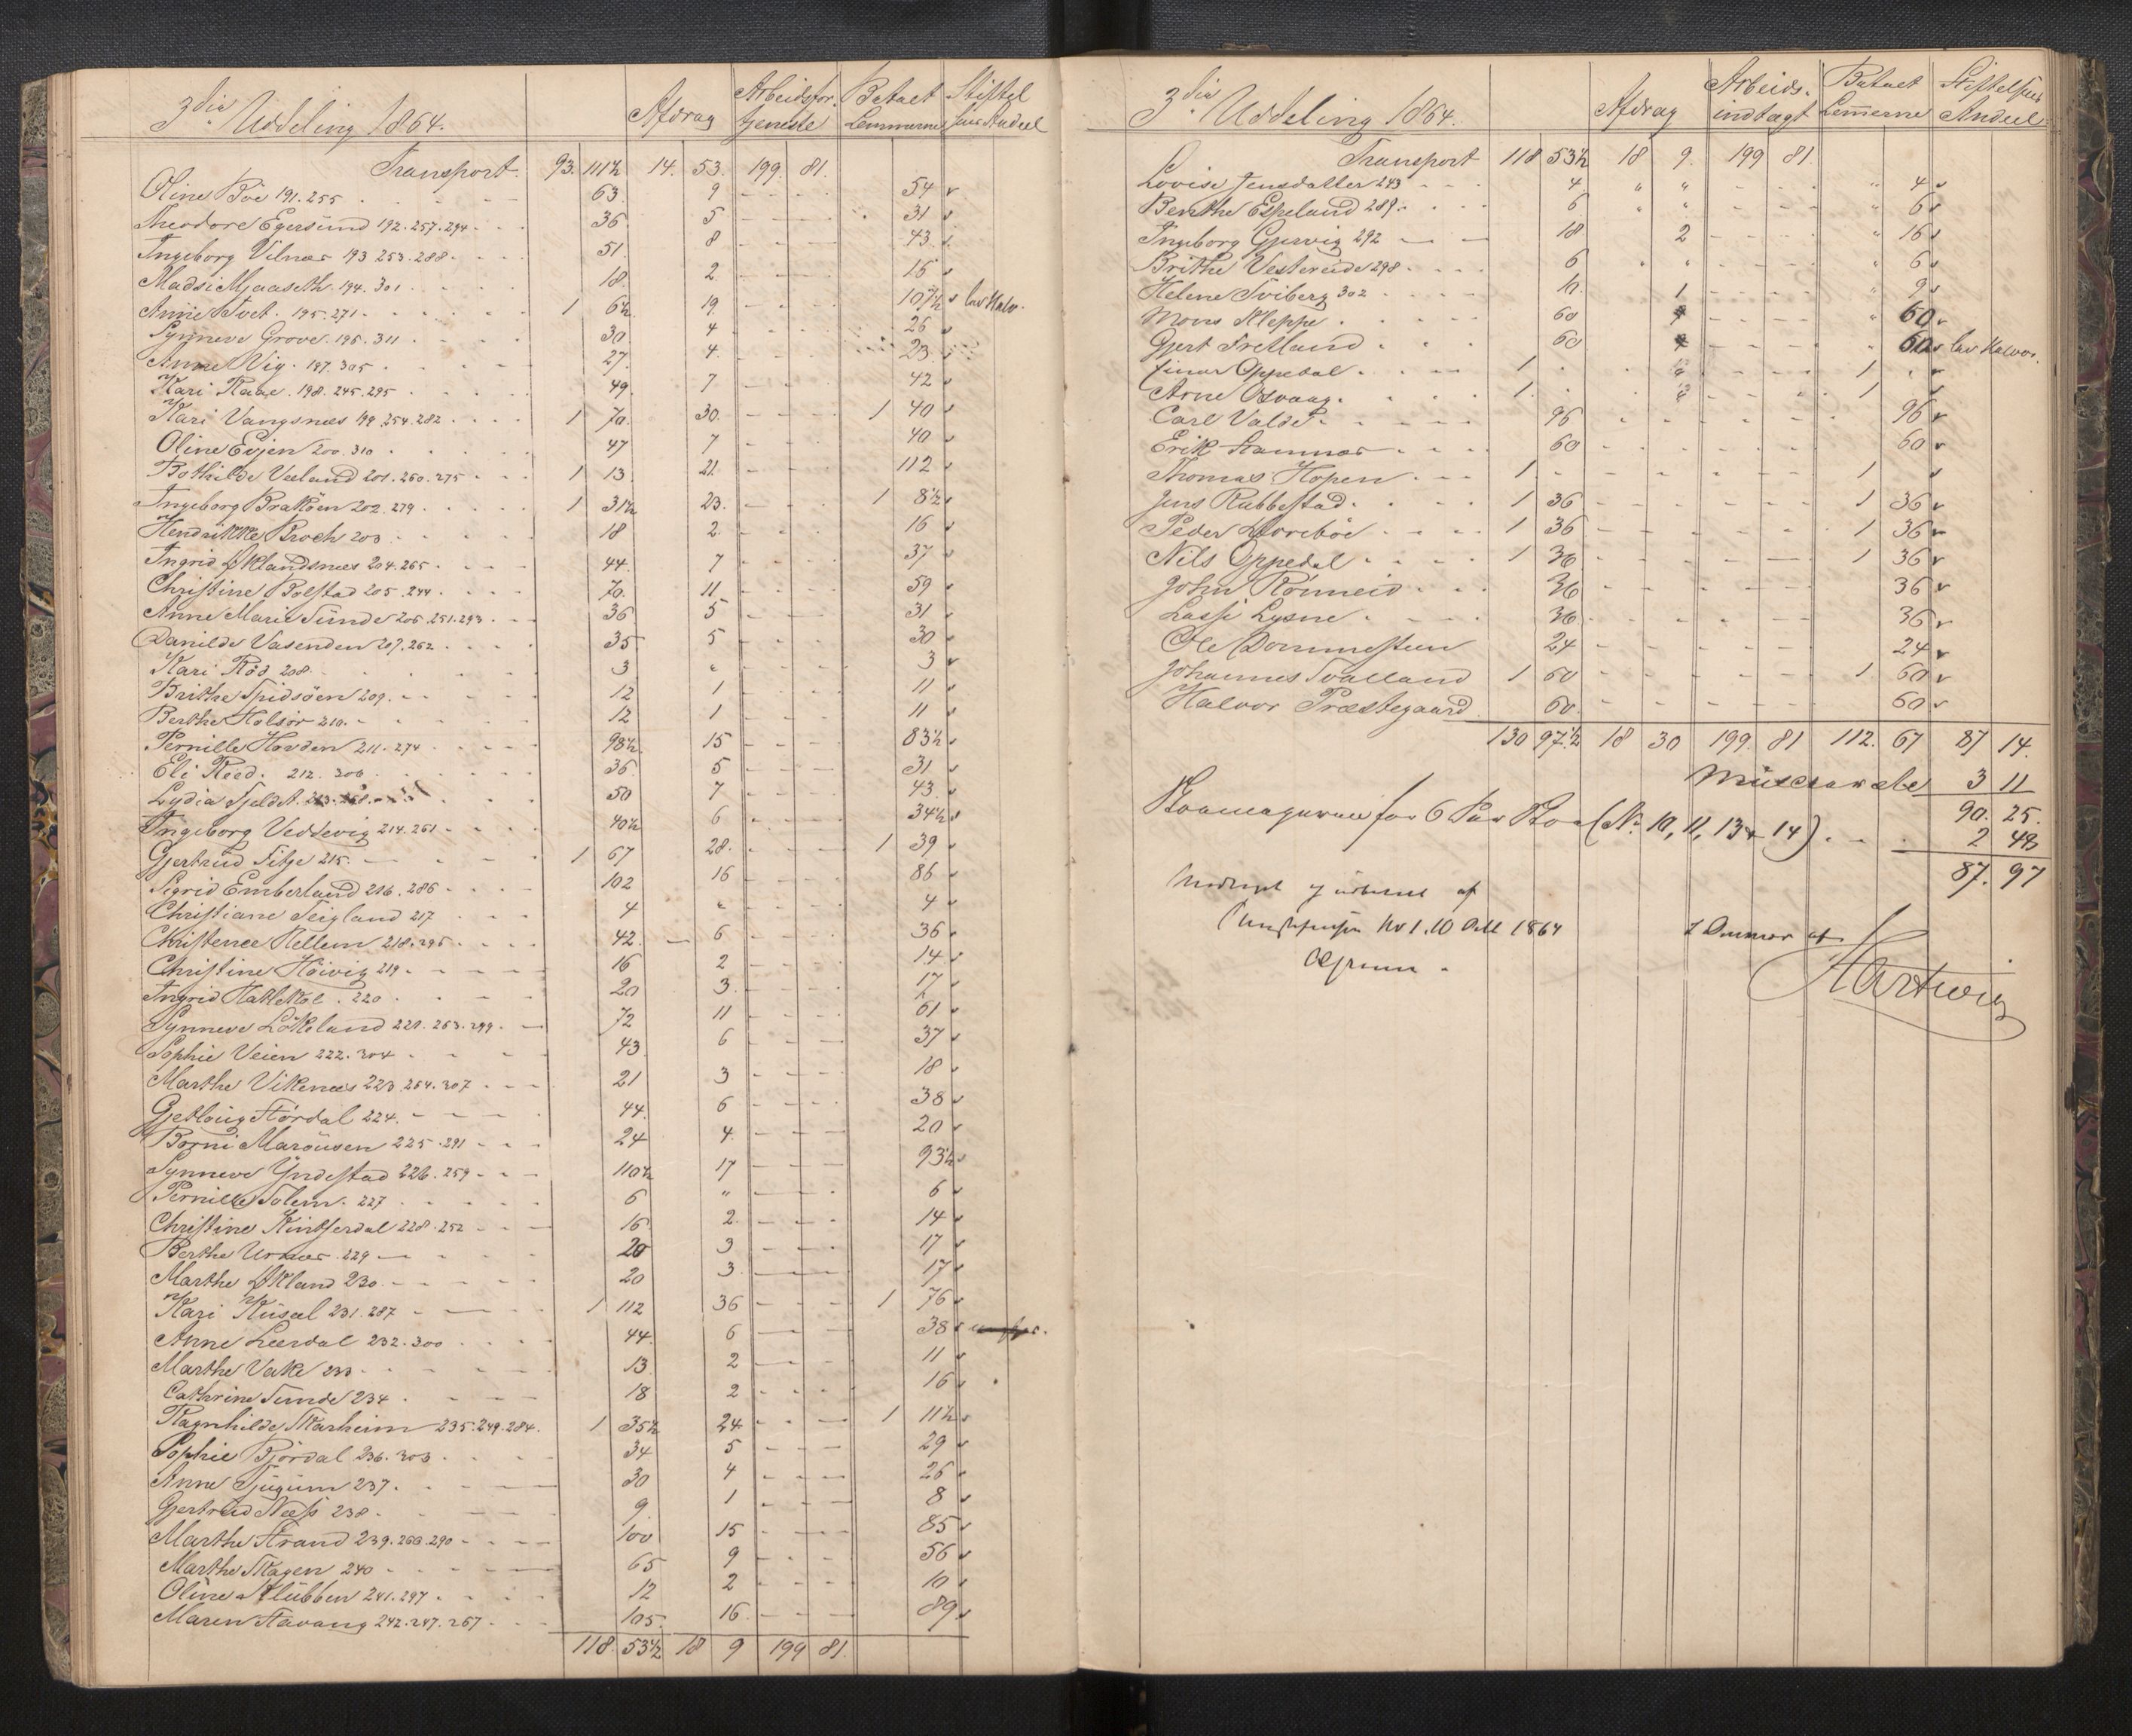 3die Uddeling 1864. Afdrag Arbeidsfor- Betalt Stiftel
tjeneste Lemmerne sens Andeel
Transport. 93. 111½ 14. 53. 199. 81.
Oline Böe 191. 255 63 9 54
Theodore Egersund 192. 257. 294 36 5 31
Ingeborg Vilnæs 193 253. 288 51 8 43
Madsi Mjaaseth 194. 301 18 2 16
Anne Tvet. 195. 271 1 6½ 19 107½
Synneve Grove. 196. 311 30 4 26
Anne Vig. 197. 305 27 4 23
Kari Raae. 198. 245. 295 49 7 42
Kari Vangsnæs 199. 254. 282 1 70 30 1 40
Oline Evjen 200. 310 47 7 40
Bothilde Veland 201. 260. 275 1 13 21 112
Ingeborg Braköen 202. 279 1 31½ 23 1 8½
Hendrikke Broch 203 18 2 16
Ingrid Öklandsnæs 204. 265 44 7 37
Christine Bolstad 205. 244 70 11 59
Anne Marie Sunde 206. 251. 293 36 5 31
Danilde Vasenden 207. 262 35 5 30
Kari Röd 208 3 " 3
Brithe Spidsöen 209 12 1 11
Berthe Holsör 210 12 1 11
Pernille Hovden 211. 274 98½ 15 83½
Eli Reed. 212. 306 36 5 31
Lydia Tjeldet 50 7 43
Ingeborg Veddevig 214. 261 40½ 6 34½
Gjertrud Titje 215 1 67 28 1 39
Sigrid Emberland 216. 286 102 16 86
Christiane Teigland 217 4 " 4
Christence Hellem 218. 296 42 6 36
Christine Höivig 219 16 2 14
Ingrid Hatlekol 220 20 3 17
Synneve Lökeland 221. 263. 299 72 11 61
Sophie Veien 222. 304 43 6 37
Marthe Vikenæs 223. 264. 307 21 3 18
Gjetloug Stördal 224 44 6 38
Borni Marøusen 225. 291 24 4 20
Synneve Yndestad 226. 259 110½ 17 93½
Pernille Solem. 227 6 " 6
Christine Kintserdal 228. 252 16 2 14
Berthe Urnæs 229 20 3 17
Marthe Ökland 230 20 3 17
Kari Kusæl 231. 287 1 112 36 1 76
Anne Leerdal 232. 300 44 6 38
Marthe Vake 233 13 2 11
Cathrine Sunde 234 18 2 16
Ragnhilde Skarheim 235. 249. 284. 1 35½ 24 1 11½
Sophie Björdal 236. 303 34 5 29
Anne Tjugum 237. 30 4 26
Gjertrud Næss 238 9 1 8
Marthe Strand 239. 266. 290 100 15 85
Marthe Skagen 240 65 9 56
Oline Stubben 241. 297 12 2 10
Maren Stavang 242. 247. 267 105 16 89
118. 53½ 18 9 199 81.
3die Uddeling 1864. Afdrag Arbeids- Betalt Stiftelsens
indtægt Lemmerne Andeel
Transport 118 53½ 18 9. 199 81.
Lovise Jensdatter 243 4 " " " 4
Berthe Espeland 289 6 " " " 6
Ingeborg Gjervig 292 18 2 " 16
Brithe Vestereide 298 6 " " " 6
Helene Sviberg 302 10 1 " 9
Mons Kleppe 60 " 60
Gjert Fretland 60 " 60
Einar Oppedal 1 1
Arne Osvaag 1 1
Carl Valde 96 96
Erik Hamnæs 60 60
Thomas Hopen 1 1
Jens Rabbestad 1 36 1 36
Peder Horreböe 1 36 1 36
Nils Oppedal 1 36 1 36
John Rönneid 36 36
Lasse Lysne 36 36
Ole Dommesteen 24 24
Johannes Tvalland 1 60 1 60
Halvor Præstegaard 60 60
130 97½ 18 30 199. 81 112. 67 87 14.
3 11
90. 25.
for 6 Par Skoe (No 10, 11, 13 & 14) 2 49
87. 97
10 Octb 1864
Hartwig